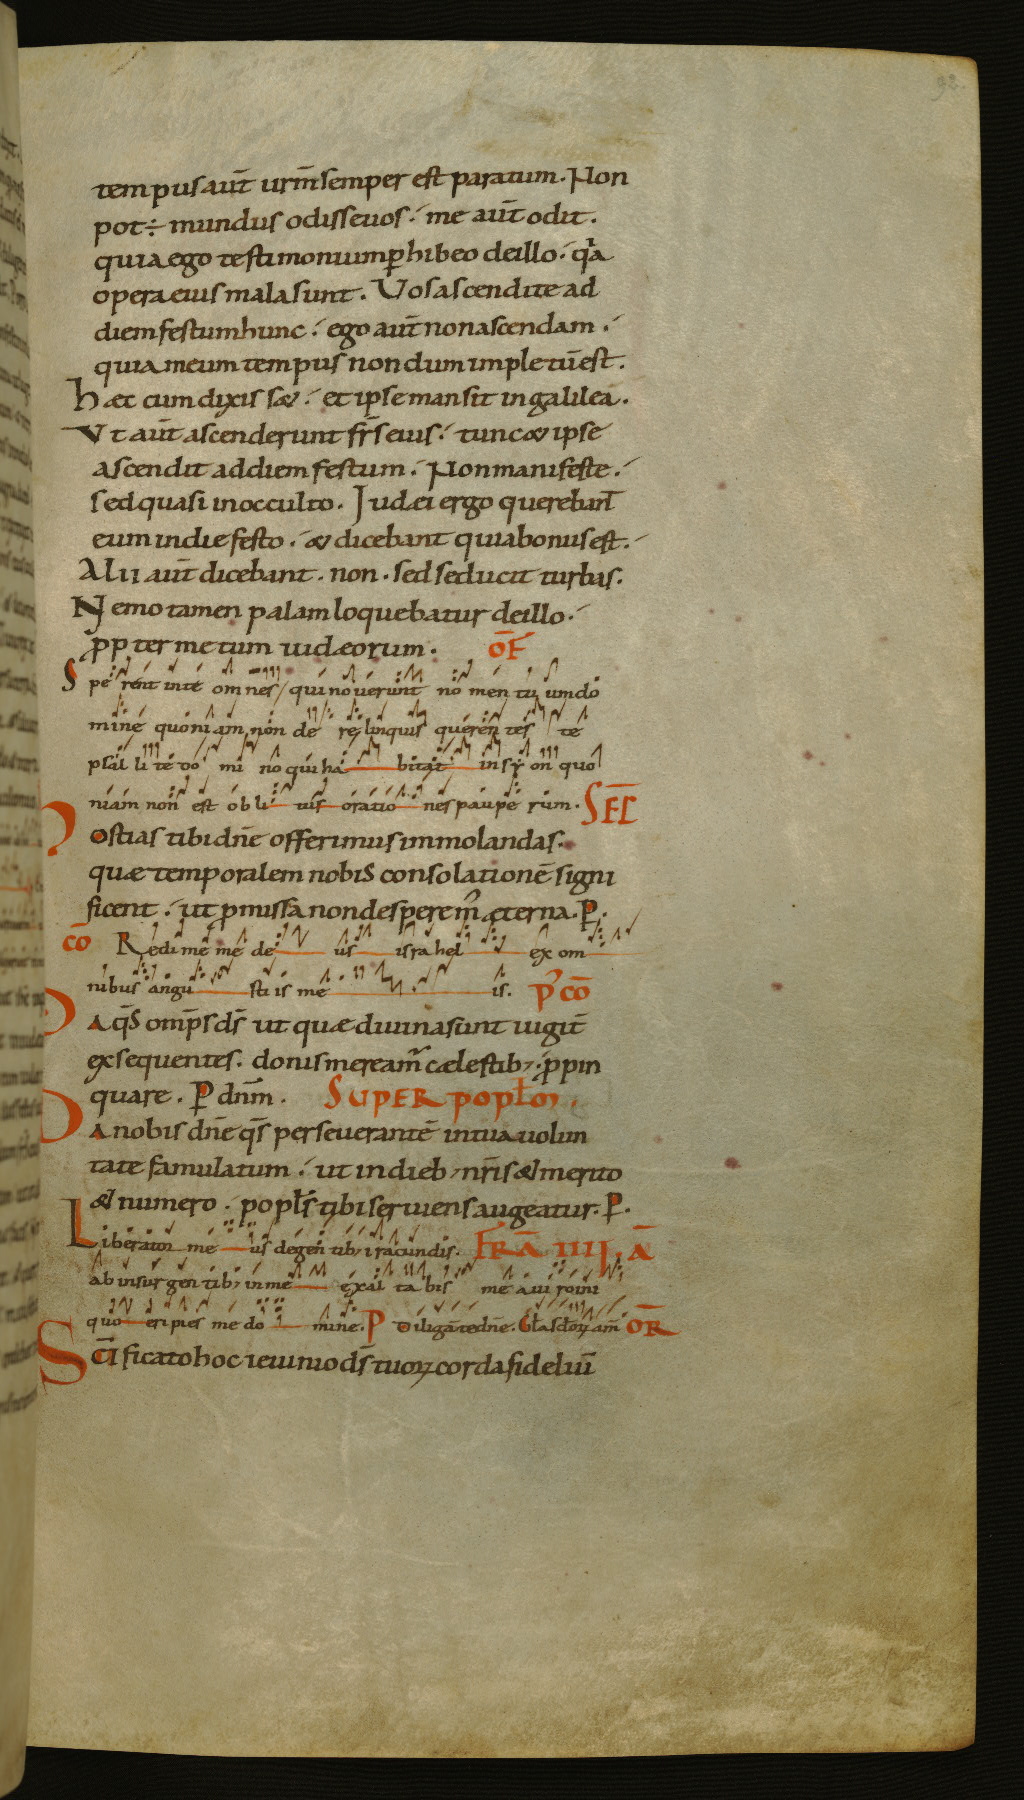 92.
tempus aut̄ urm̄ semper est paratum. Non
pot÷ mundus odisse uos. me aut̄ odit.
quia ego testimonium ꝑhibeo de illo. q̄a
opera eius mala sunt. Vos ascendite ad
diem festum hunc. ego aut̄ non ascendam.
quia meum tempus nondum impletū est.
haec cum dixisset. et ipse mansit in galilea.
Vt aut̄ ascenderunt fr̄s eius. tunc & ipse
ascendit ad diem festum. Non manifeste.
sed quasi in occulto. Iudaei ergo querebant
eum in die festo. & dicebant quia bonus est.
Alii aut̄ dicebant. non. sed seducit turbas.
Nemo tamen palam loquebatur de illo.
ꝓpter metum iudaeorum. OF̄
Sperent in te omnes qui nouerunt nomen tuum do
mine quoniam non derelinquis querentes te
psallite domino qui habitat in syon quo
niam non est oblitus orationes pauperum. SEC̄
Hostias tibi dn̄e offerimus immolandas.
quae temporalem nobis consolationē signi
ficent. ut ꝓmissa non desperem̄ aeterna. P.
CŌ Redime me deus israhel ex om
nibus angustiis meis. P̄ CŌ
Da q̄s omp̄s ds̄ ut quae diuina sunt iugit̄
exsequentes. donis meream̄ caelestib; ꝓpin
quare. P dnm̄. SUPER popłm.
Da nobis dn̄e q̄s perseuerantē in tua uolun
tate famulatum. ut in dieb; nr̄is & merito
& numero. popłs tibi seruiens augeatur. P.
Liberator meus de gentib; iracundis. FR̄A IIII, Ā
ab insurgentib; in me exaltabis me a uiro ini
quo eripies me domine. P Diligam te dn̄e. Gła sc̄doꝝ am̄ OR̄
Sc̄ificato hoc ieiunio ds̄ tuoꝝ corda fideliū